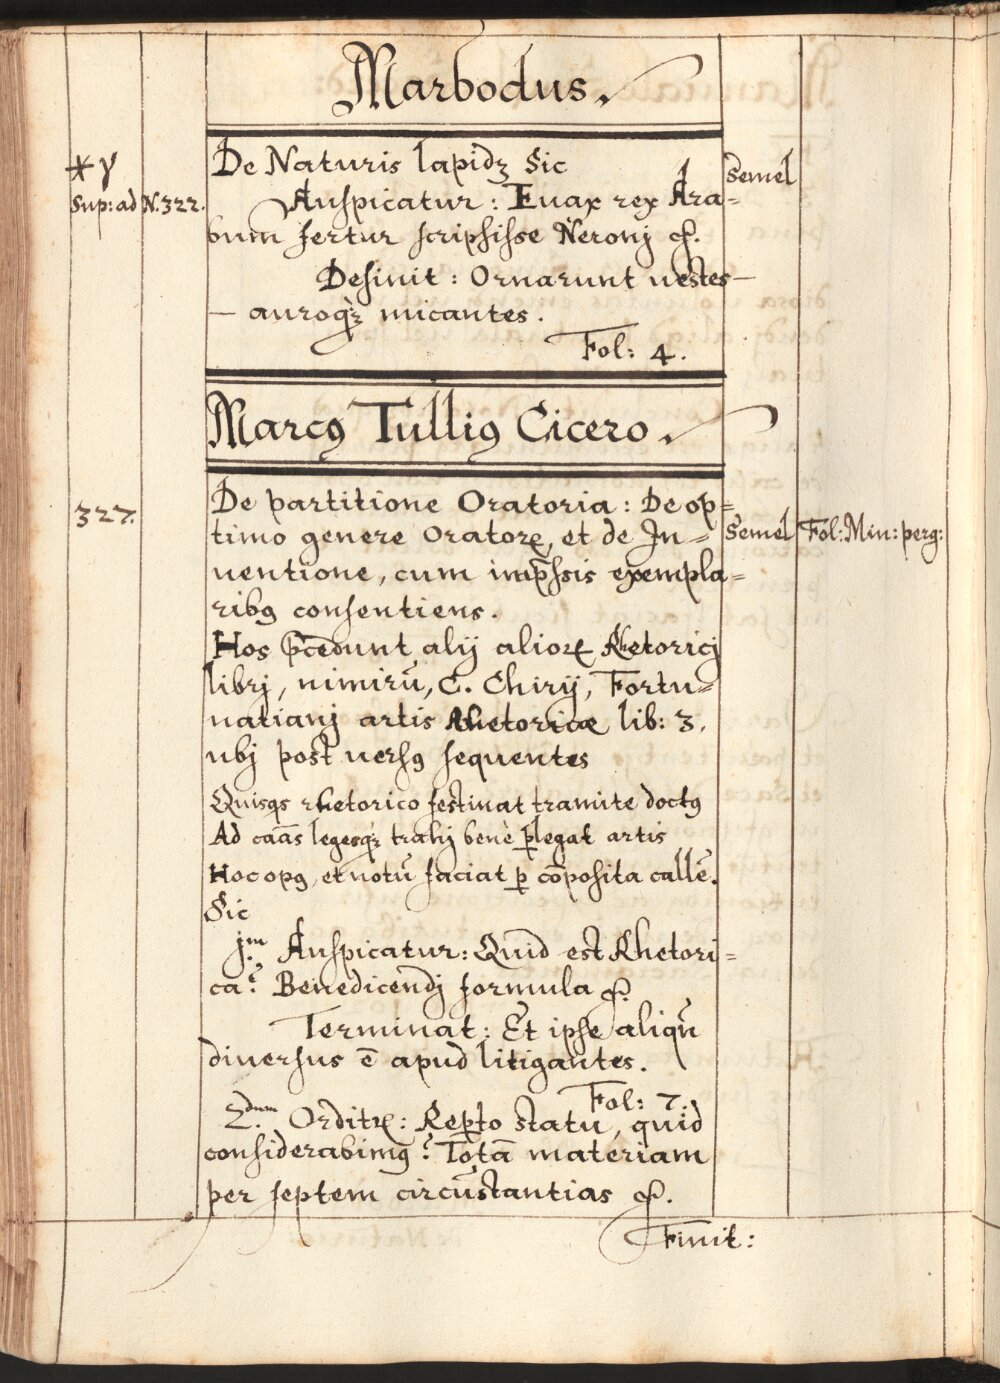 Marbodus.
* y
De Naturis lapidꝫ Sic
Semel
Sup: ad N. 322.
Auspicatur: Euax rex Ara=
bum fertur scripsisse Neronj &.
Desinit: Ornarunt uestes—
— auroqꝫ micantes.
Fol: 4.
Marcꝰ Tulliꝰ Cicero.
327.
De partitione Oratoria: De op=
timo genere Oratoꝝ, et de In=
Semel
Fol: Min: perg:
uentione, cum imp̄ssis exempla=
ribꝰ consentiens.
Hos p̄cedunt alij alioꝝ Rhetoricj
librj, nimirū, C. Chirij, Fortu=
natianj artis Rhetoricæ lib: 3.
ubj post uersꝰ sequentes
Quisqs rhetorico festinat tramite doctꝰ
Ad caās legesqꝫ trahj benè ꝑlegat artis
Hoc opꝰ, et notū faciat ꝑ cōposita callē.
Sic
jm. Auspicatur: Quid est Rhetori=
ca? Benedicendj formula &.
Terminat: Et ipse aliqū
diuersus ē apud litigantes.
Fol: 7.
2.dum Orditꝝ: Reꝑto statu, quid
considerabimꝰ? Totā materiam
per septem circūstantias &.
Finit: